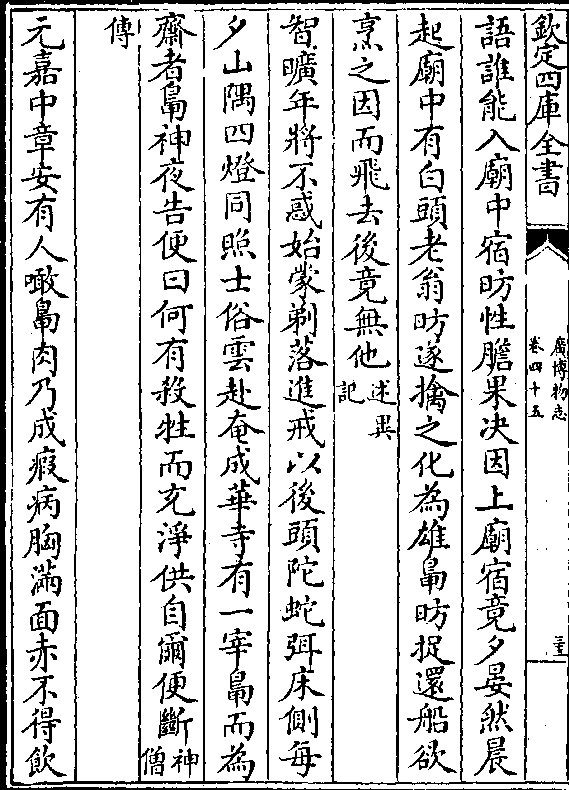 欽定四庫全書
廣博物志
卷四十五
三
語誰能入廟中宿昉性膽果决因上廟宿竟夕晏然晨
起廟中有白頭老翁昉遂擒之化為雄鳬昉捉還船欲
烹之因而飛去後竟無他述異記
智曠年將不惑始蒙剃落進戒以後頭陀蛇弭床側每
夕山隅四燈同照士俗雲赴奄成華寺有一宰鳬而為
齋者鳬神夜告便曰何有殺牲而充淨供自爾便斷神僧
傳
元嘉中章安有人噉鳬肉乃成瘕病胸滿面赤不得飲